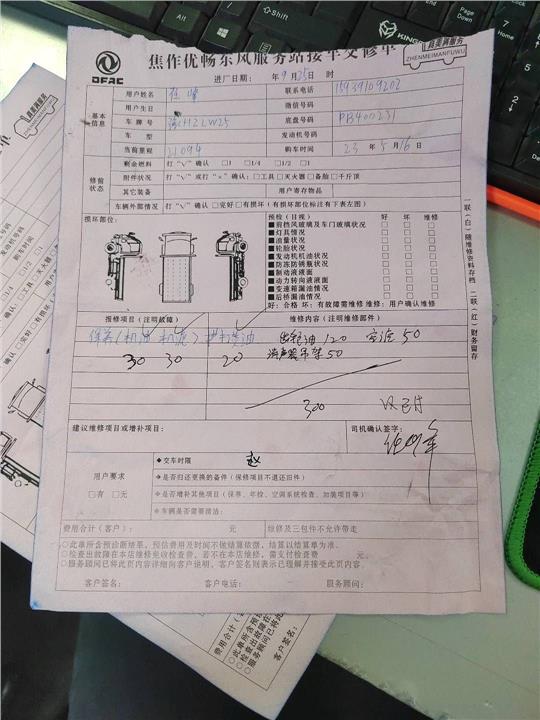 焦作优畅东风服务站接车交修单
DFAC
真美满服务
ZHENMEIMANFUWU
进厂日期： 年9月25日 时
基本信息
用户姓名 联系电话 15939109202
用户生日 微信号码
车牌号 豫H2LW25 底盘号码 PB400231
车型 发动机号码
当前里程 21094 购车时间 23年5月16日
修前状态
剩余燃料 打“√”确认 □1 □1/4 □1/2 □1
附件状况 打“√”或打“×”确认：□工具□灭火器□备胎□千斤顶
其它装备 用户寄存物品
车辆外部情况 打“√”确认□完好□有损坏（有损坏部位标注有下表左图）
损坏部位：
预检（目视） 好 坏 维修
■前档风玻璃及车门玻璃状况 □ □ □
■灯具情况 □ □ □
■油量状况 □ □ □
■轮胎状况 □ □ □
■发动机机油状况 □ □ □
■防冻防锈瓶状况 □ □ □
■制动液液面 □ □ □
■动力转向液液面 □ □ □
■变速箱漏油情况 □ □ □
■后桥漏油情况 □ □ □
好：合格 坏：有故障需维修 维修：用户确认维修
一联（白）随维修资料存档 二联（红）财务留存
报修项目（注明故障） 维修内容（注明维修部件）
保养（机油 机滤） 齿轮油 120 50
30 30 20 消声器吊架50
300 已付
建议维修项目或增补项目： 司机确认签字：
用户要求
□有 □无
◆交车时限 赵
◆是否归还更换的备件（保修项目不退还旧件）
◆是否增补其他项目（保养、年检、空调系统检查、加装项目等）
◆车辆是否需要清洁：
费用合计（客户）： 元 维修及三包件不允许带走
○此单所含预诊断结果，预估费用及时间不做结算依据，结算以结算单为准。
○检查出故障在本店维修免收检查费，若不在本店维修，需支付检查费 元。
○服务顾问已将此页内容详细向客户说明，客户签名则表示已理解并接受此页内容。
客户签名： 客户电话： 服务顾问：